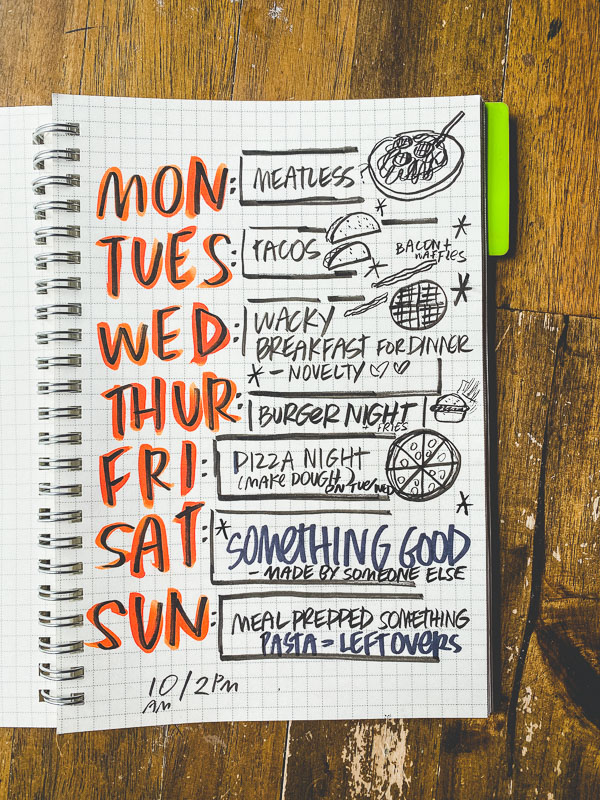 MON: MEATLESS
TUES: TACOS
BACON +
WAFFLES
WED: WACKY
BREAKFAST FOR DINNER
- NOVELTY
THUR: BURGER NIGHT
FRIES
FRI: PIZZA NIGHT
(MAKE DOUGH)
ON TUE/WED
SAT: SOMETHING GOOD
- MADE BY SOMEONE ELSE
SUN: MEAL PREPPED SOMETHING
PASTA = LEFTOVERS
10/2PM
AM